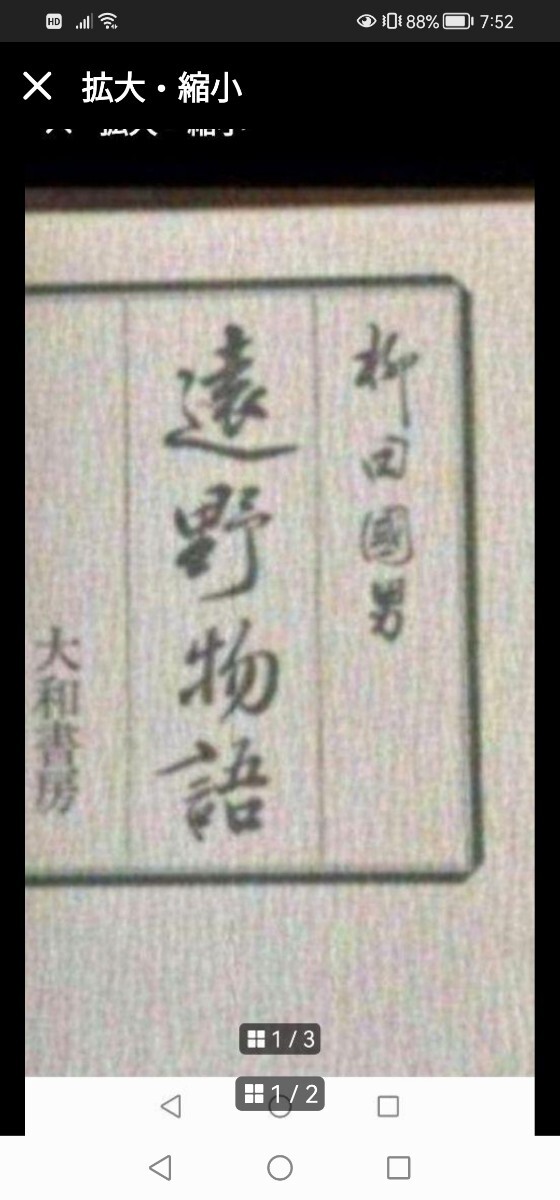 HD 88% 7:52
拡大・縮小
柳田國男
遠野物語
大和書房
1 / 3
1 / 2